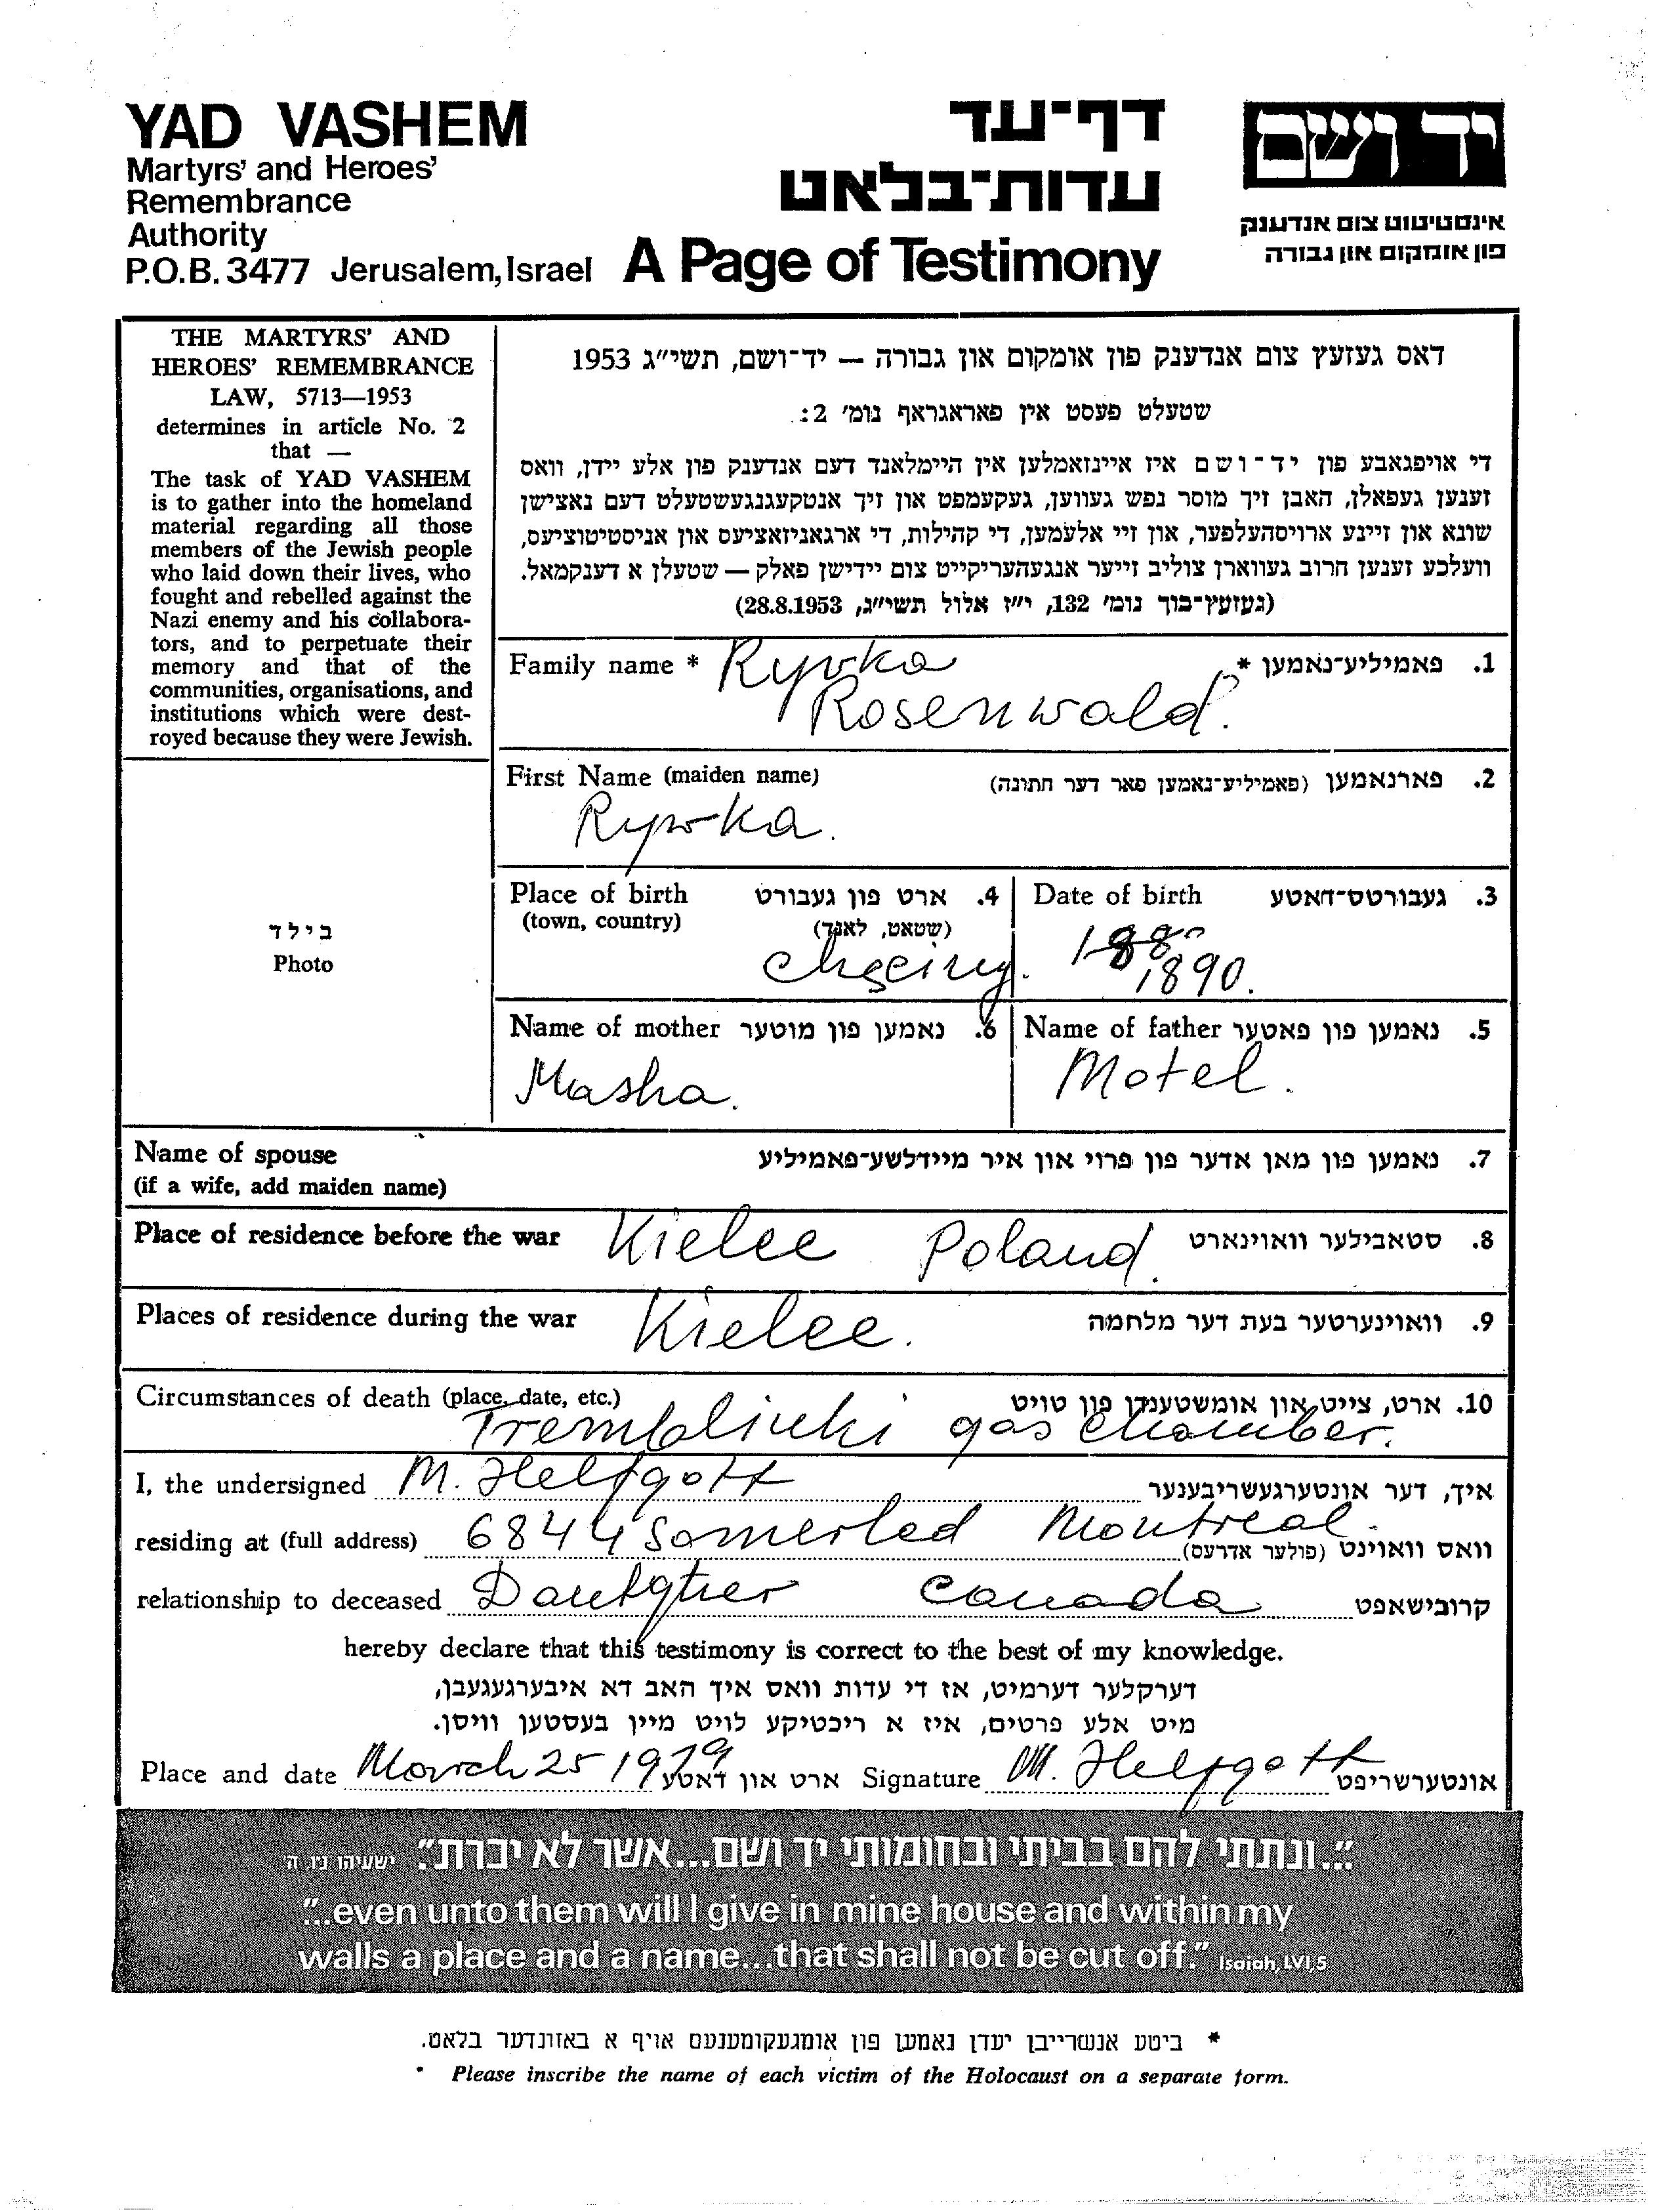 YAD VASHEM
Martyrs' and Heroes'
Remembrance
Authority
P.O.B. 3477 Jerusalem, Israel
דף-עד
עדות-בלאט
A Page of Testimony
יד ושם
אינסטיטוט צום אנדענק
פון אומקום און גבורה
THE MARTYRS' AND
HEROES' REMEMBRANCE
LAW, 5713—1953
determines in article No. 2
that —
The task of YAD VASHEM
is to gather into the homeland
material regarding all those
members of the Jewish people
who laid down their lives, who
fought and rebelled against the
Nazi enemy and his collabora-
tors, and to perpetuate their
memory and that of the
communities, organisations, and
institutions which were dest-
royed because they were Jewish.
דאס געזעץ צום אנדענק פון אומקום און גבורה — יד-ושם, תשי״ג 1953
שטעלט פעסט אין פאראגראף נומ׳ 2:
די אויפגאבע פון יד-ושם איז איינזאמלען אין היימלאנד דעם אנדענק פון אלע יידן, וואס
זענען געפאלן, האבן זיך מוסר נפש געווען, געקעמפט און זיך אנטקעגנגעשטעלט דעם נאצישן
שונא און זיינע ארויסהעלפער, און זיי אלעמען, די קהילות, די ארגאניזאציעס און אניסטיטוציעס,
וועלכע זענען חרוב געווארן צוליב זייער אנגעהעריקייט צום יידישן פאלק — שטעלן א דענקמאל.
(געזעץ-בוך נומ׳ 132, י״ז אלול תשי״ג, 28.8.1953)
Family name * Rywka פאמיליע-נאמען * .1
Rosenwald.
First Name (maiden name) פארנאמען (פאמיליע-נאמען פאר דער חתונה) .2
Rywka.
בילד
Photo
Place of birth ארט פון געבורט .4
(town, country) (שטאט, לאנד)
Checiny.
Date of birth געבורטס-דאטע .3
1880
1890.
Name of mother נאמען פון מוטער .6
Masha.
Name of father נאמען פון פאטער .5
Motel.
Name of spouse נאמען פון מאן אדער פון פרוי און איר מיידלשע-פאמיליע .7
(if a wife, add maiden name)
Place of residence before the war Kielce Poland. סטאבילער וואוינארט .8
Places of residence during the war Kielce. וואוינערטער בעת דער מלחמה .9
Circumstances of death (place, date, etc.) ארט, צייט און אומשטענדן פון טויט .10
Tremblinki gas chamber.
I, the undersigned M. Helfgott איך, דער אונטערגעשריבענער
residing at (full address) 6844 Somerled Montreal. וואס וואוינט (פולער אדרעס)
relationship to deceased Daukgtier Canada קרובישאפט
hereby declare that this testimony is correct to the best of my knowledge.
דערקלער דערמיט, אז די עדות וואס איך האב דא איבערגעגעבן,
מיט אלע פרטים, איז א ריכטיקע לויט מיין בעסטען וויסן.
Place and date March 25 1979 ארט און דאטע Signature M. Helfgott אונטערשריפט
״...ונתתי להם בביתי ובחומותי יד ושם...אשר לא יכרת״. ישעיהו נ״ו, ה׳
"...even unto them will I give in mine house and within my
walls a place and a name...that shall not be cut off." Isaiah, LVI, 5
* ביטע אנשרייבן יעדן נאמען פון אומגעקומענעם אויף א באזונדער בלאט.
* Please inscribe the name of each victim of the Holocaust on a separate form.